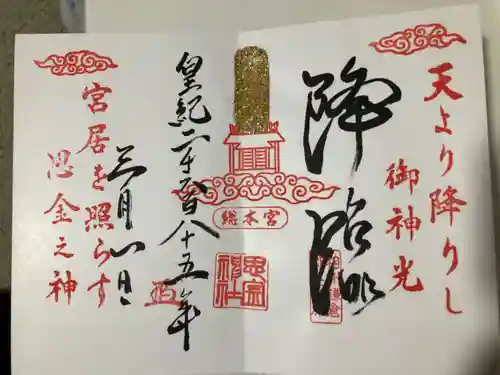 天より降りし
御神光
降臨
総本宮
皇紀二千六百八十五年
三月八日
宮居を照らす
思金之神